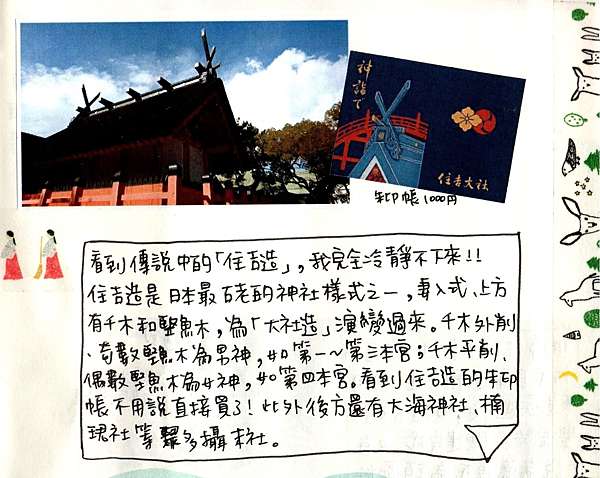 神詣で
住吉大社
朱印帳 1000円
看到傳說中的「住吉造」,我完全冷靜不下來!!
住吉造是日本最古老的神社樣式之一,妻入式、上方
有千木和堅魚木,為「大社造」演變過來。千木外削
、奇數堅魚木為男神,如第一~第三本宮;千木平削、
偶數堅魚木為女神,如第四本宮。看到住吉造的朱印
帳不用說直接買了!此外後方還有大海神社、楠
珺社等眾多攝末社。